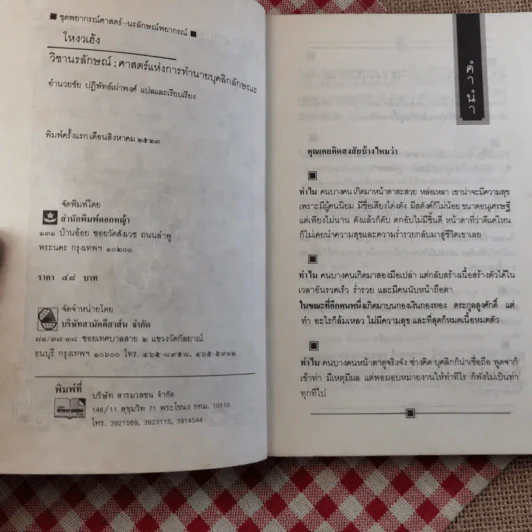 ■ ชุดพยากรณ์ศาสตร์-นรลักษณ์พยากรณ์ ■
โหงวเฮ้ง
วิชานรลักษณ์ ; ศาสตร์แห่งการทำนายบุคลิกลักษณะ
อำนวยชัย ปฏิพัทธ์เผ่าพงศ์ แปลและเรียบเรียง
พิมพ์ครั้งแรก เดือนสิงหาคม ๒๕๒๓
จัดพิมพ์โดย
สำนักพิมพ์ดอกหญ้า
๑๓๑ บ้านอ้อย ซอยวัดสังเวช ถนนลำพู
พระนคร กรุงเทพฯ ๑๐๒๐๐
ราคา ๔๘ บาท
จัดจำหน่ายโดย
บริษัทสามัคคีสาส์น จำกัด
ซอยเทศบาลสาย ๒ แขวงวัดกัลยาณ์
ธนบุรี กรุงเทพฯ ๑๐๖๐๐ โทร.
พิมพ์ที่
บริษัท สารมวลชน จำกัด
146/11 สุขุมวิท 71 พระโขนง กทม. 10110
โทร. 3921569, 3923115, 3914544
คำนำ
คุณเคยคิดสงสัยบ้างไหมว่า
ทำไม คนบางคนเกิดมาหน้าตาสะสวย หล่อเหลา เขาน่าจะมีความสุข
เพราะมีผู้คนนิยม มีชื่อเสียงโด่งดัง มีสตังค์ก็ไม่น้อยขนาดอนุเศรษฐี
แต่เพียงไม่นาน ดังแล้วก็ดับ ตกอับไม่มีชิ้นดี หน้าตาที่ว่าดีแค่ไหน
ก็ไม่เคยนำความสุขและความร่ำรวยกลับมาสู่ชีวิตเขาเลย
ทำไม คนบางคนเกิดมาสองมือเปล่า แต่กลับสร้างเนื้อสร้างตัวได้ใน
เวลาอันรวดเร็ว ร่ำรวย และมีคนนับหน้าถือตา
ในขณะที่อีกคนหนึ่งเกิดมาบนกองเงินกองทอง ตระกูลสูงศักดิ์ แต่
ทำ อะไรก็ล้มเหลว ไม่มีความสุข และที่สุดก็หมดเนื้อหมดตัว
ทำไม คนบางคนหน้าตาดูจริงจัง ช่างคิด บุคลิกก็น่าเชื่อถือ พูดจาก็
เข้าท่า มีเหตุมีผล แต่พอมอบหมายงานให้ทำทีไร ก็พังไม่เป็นท่า
ทุกทีไป